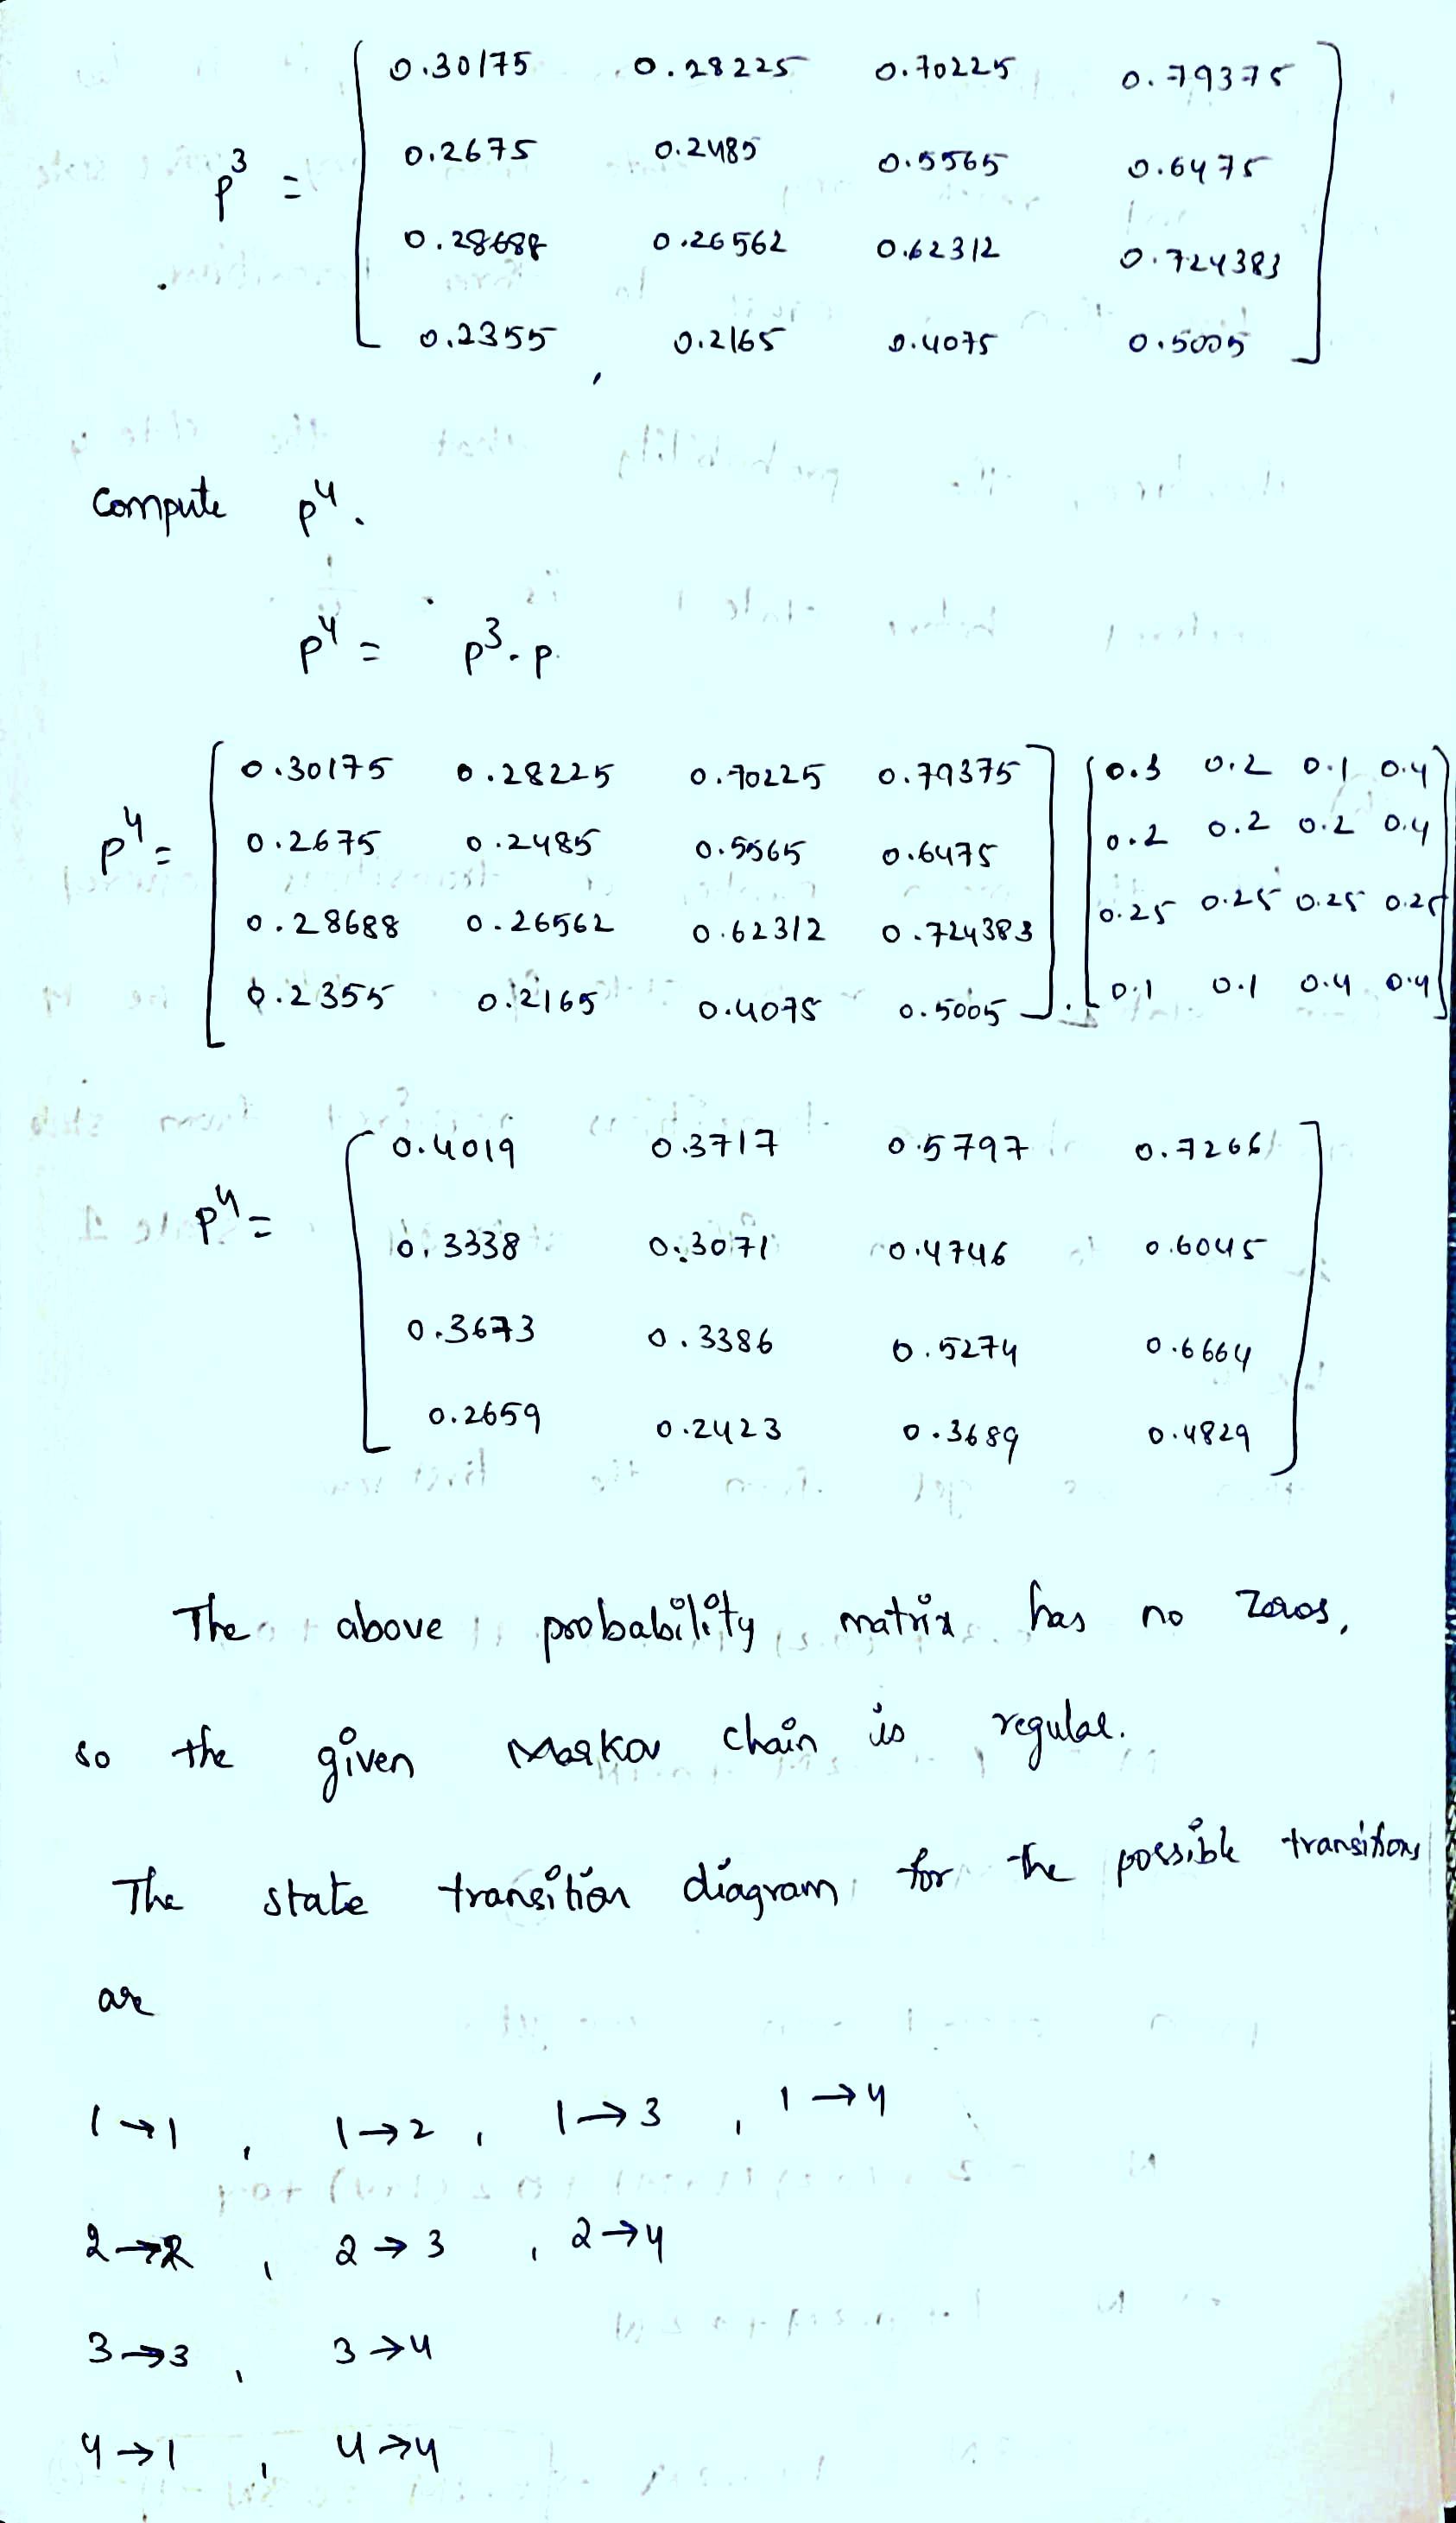 0.30175 0.28225 0.70225 0.79375
0.2675 0.2485 0.5565 0.6475
p³ =
0.28688 0.26562 0.62312 0.724383
0.2355 0.2165 0.4075 0.5005
Compute p⁴.
p⁴ = p³.p.
0.30175 0.28225 0.70225 0.79375 0.3 0.2 0.1 0.4
p⁴ = 0.2675 0.2485 0.5565 0.6475 0.2 0.2 0.2 0.4
0.28688 0.26562 0.62312 0.724383 0.25 0.25 0.25 0.25
0.2355 0.2165 0.4075 0.5005 . 0.1 0.1 0.4 0.4
0.4019 0.3717 0.5797 0.7266
p⁴ = 0.3338 0.3071 0.4746 0.6045
0.3673 0.3386 0.5274 0.6664
0.2659 0.2423 0.3689 0.4829
The above probability matrix has no zeros,
so the given Markov chain is regular.
The state transition diagram for the possible transitions
are
1→1 , 1→2 , 1→3 , 1→4
2→2 , 2→3 , 2→4
3→3 , 3→4
4→1 , 4→4